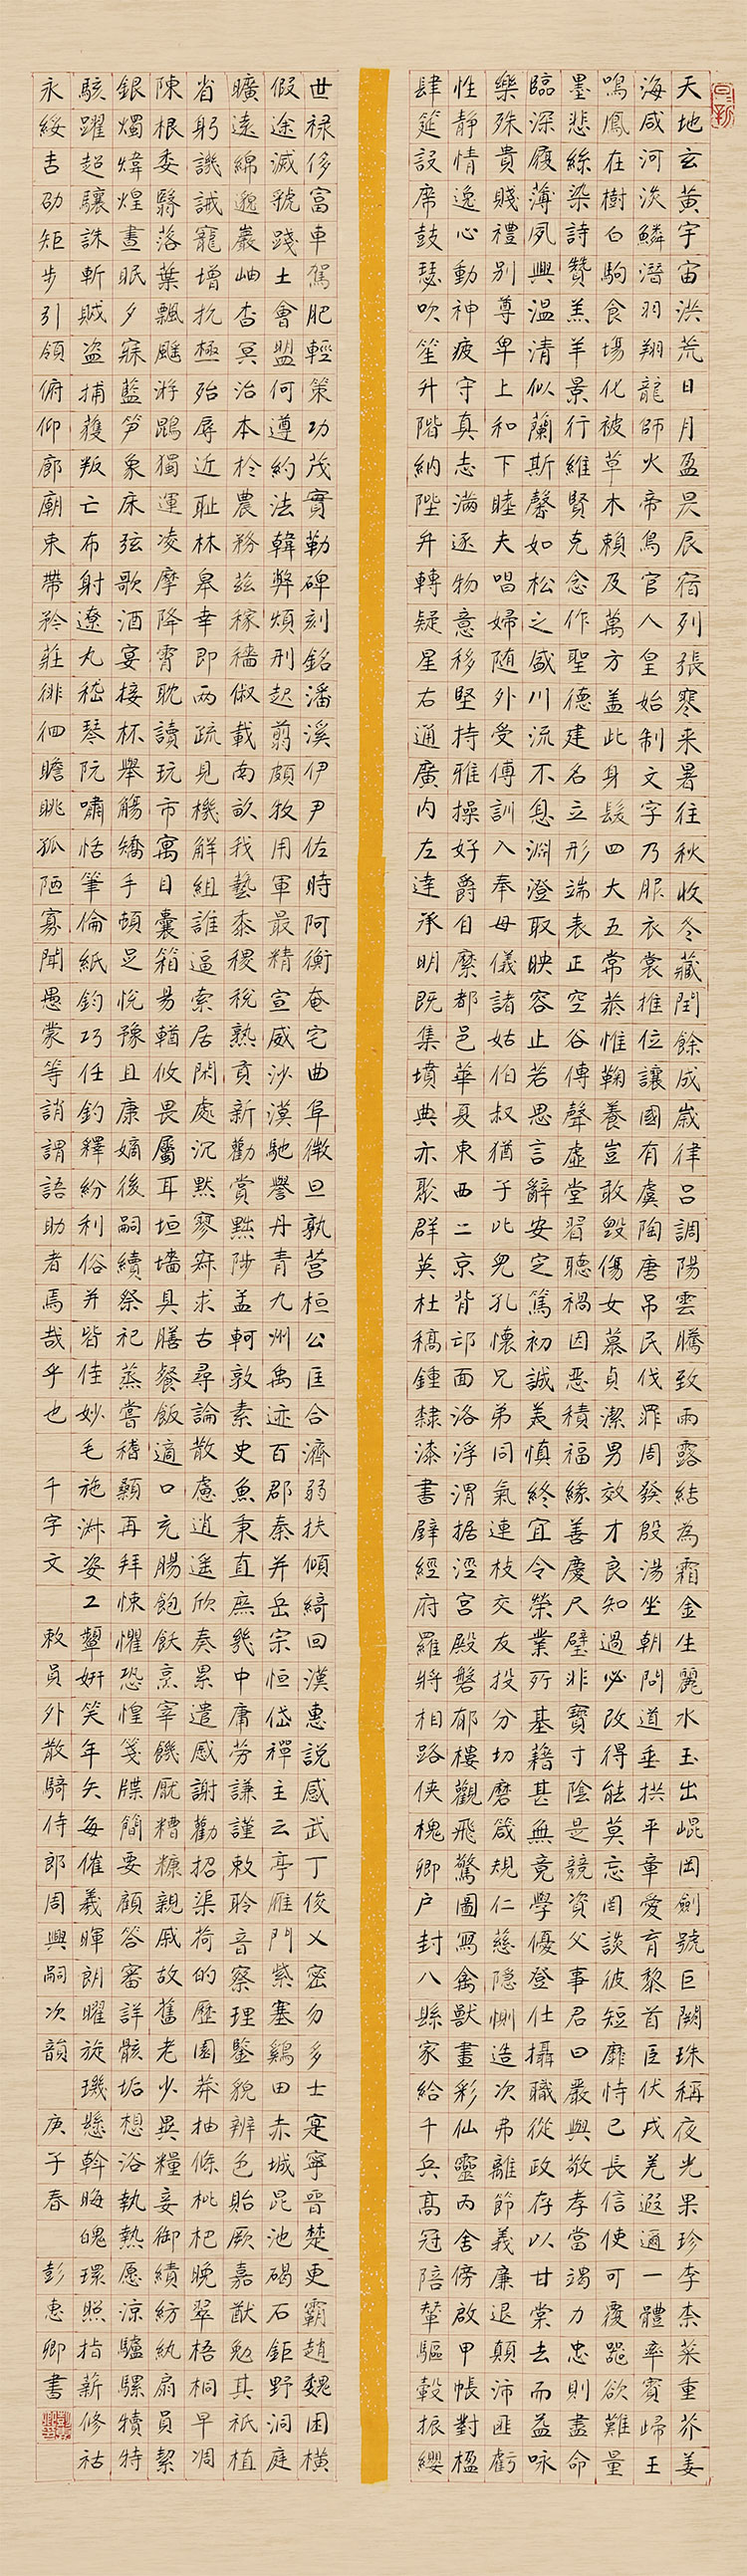 日新
天地玄黃宇宙洪荒日月盈昃辰宿列張寒来暑往秋收冬藏閏餘成歲律呂調陽雲騰致雨露結為霜金生麗水玉出崐岡劍號巨闕珠稱夜光果珍李柰菜重芥姜
海咸河淡鱗潛羽翔龍師火帝鳥官人皇始制文字乃服衣裳推位讓國有虞陶唐吊民伐罪周發殷湯坐朝問道垂拱平章愛育黎首臣伏戎羌遐邇一體率賓歸王
鳴鳳在樹白駒食場化被草木賴及萬方蓋此身髮四大五常恭惟鞠養豈敢毀傷女慕貞潔男效才良知過必改得能莫忘罔談彼短靡恃己長信使可覆器欲難量
墨悲絲染詩贊羔羊景行維賢克念作聖德建名立形端表正空谷傳聲虛堂習聽禍因惡積福緣善慶尺璧非寶寸陰是競資父事君曰嚴與敬孝當竭力忠則盡命
臨深履薄夙興溫清似蘭斯馨如松之盛川流不息淵澄取映容止若思言辭安定篤初誠美慎終宜令榮業所基藉甚無竟學優登仕攝職從政存以甘棠去而益咏
樂殊貴賤禮別尊卑上和下睦夫唱婦随外受傅訓入奉母儀諸姑伯叔猶子比兒孔懷兄弟同氣連枝交友投分切磨箴規仁慈隱惻造次弗離節義廉退顛沛匪虧
性靜情逸心動神疲守真志滿逐物意移堅持雅操好爵自縻都邑華夏東西二京背邙面洛浮渭据涇宮殿磐郁樓觀飛驚圖寫禽獸畫彩仙靈丙舍傍啟甲帳對楹
肆筵設席鼓瑟吹笙升階納陛弁轉疑星右通廣內左達承明既集墳典亦聚群英杜稿鍾隸漆書壁經府羅將相路俠槐卿戶封八縣家給千兵高冠陪輦驅轂振纓
世禄侈富車駕肥輕策功茂實勒碑刻銘潘溪伊尹佐時阿衡奄宅曲阜微旦孰營桓公匡合濟弱扶傾綺回漢惠說感武丁俊乂密勿多士寔寧晉楚更霸趙魏困橫
假途滅虢踐土會盟何遵約法韓弊煩刑起翦頗牧用軍最精宣威沙漠馳譽丹青九州禹迹百郡秦并岳宗恒岱禪主云亭雁門紫塞鷄田赤城昆池碣石鉅野洞庭
曠遠綿邈巖岫杳冥治本於農務茲稼穡俶載南畝我藝黍稷稅熟貢新勸賞黜陟孟軻敦素史魚秉直庶幾中庸勞謙謹敕聆音察理鑒貌辨色貽厥嘉猷勉其祗植
省躬譏誡寵增抗極殆辱近耻林皋幸即兩疏見機解組誰逼索居閑處沉默寥寂求古尋論散慮逍遥欣奏累遣感謝勸招渠荷的歷園莽抽條枇杷晚翠梧桐早凋
陳根委翳落葉飄颻游鵾獨運凌摩降霄耽讀玩市寓目囊箱易輶攸畏屬耳垣墻具膳餐飯適口充腸飽飫烹宰饑厭糟糠親戚故舊老少異糧妾御績紡紈扇員絜
銀燭煒煌晝眠夕寐藍笋象床弦歌酒宴接杯舉觴矯手頓足悅豫且康嫡後嗣續祭祀蒸嘗稽顙再拜悚懼恐惶箋牒簡要顧答審詳骸垢想浴執熱愿涼驢騾犢特
駭躍超驤誅斬賊盜捕獲叛亡布射遼丸嵇琴阮嘯恬筆倫紙鈞巧任釣釋紛利俗并皆佳妙毛施淑姿工顰妍笑年矢每催羲暉朗曜旋璣懸斡晦魄環照指薪修祜
永綏吉劭矩步引領俯仰廊廟束帶矜莊徘徊瞻眺孤陋寡聞愚蒙等誚謂語助者焉哉乎也 千字文 敕員外散騎侍郎周興嗣次韻 庚子春 彭惠卿書